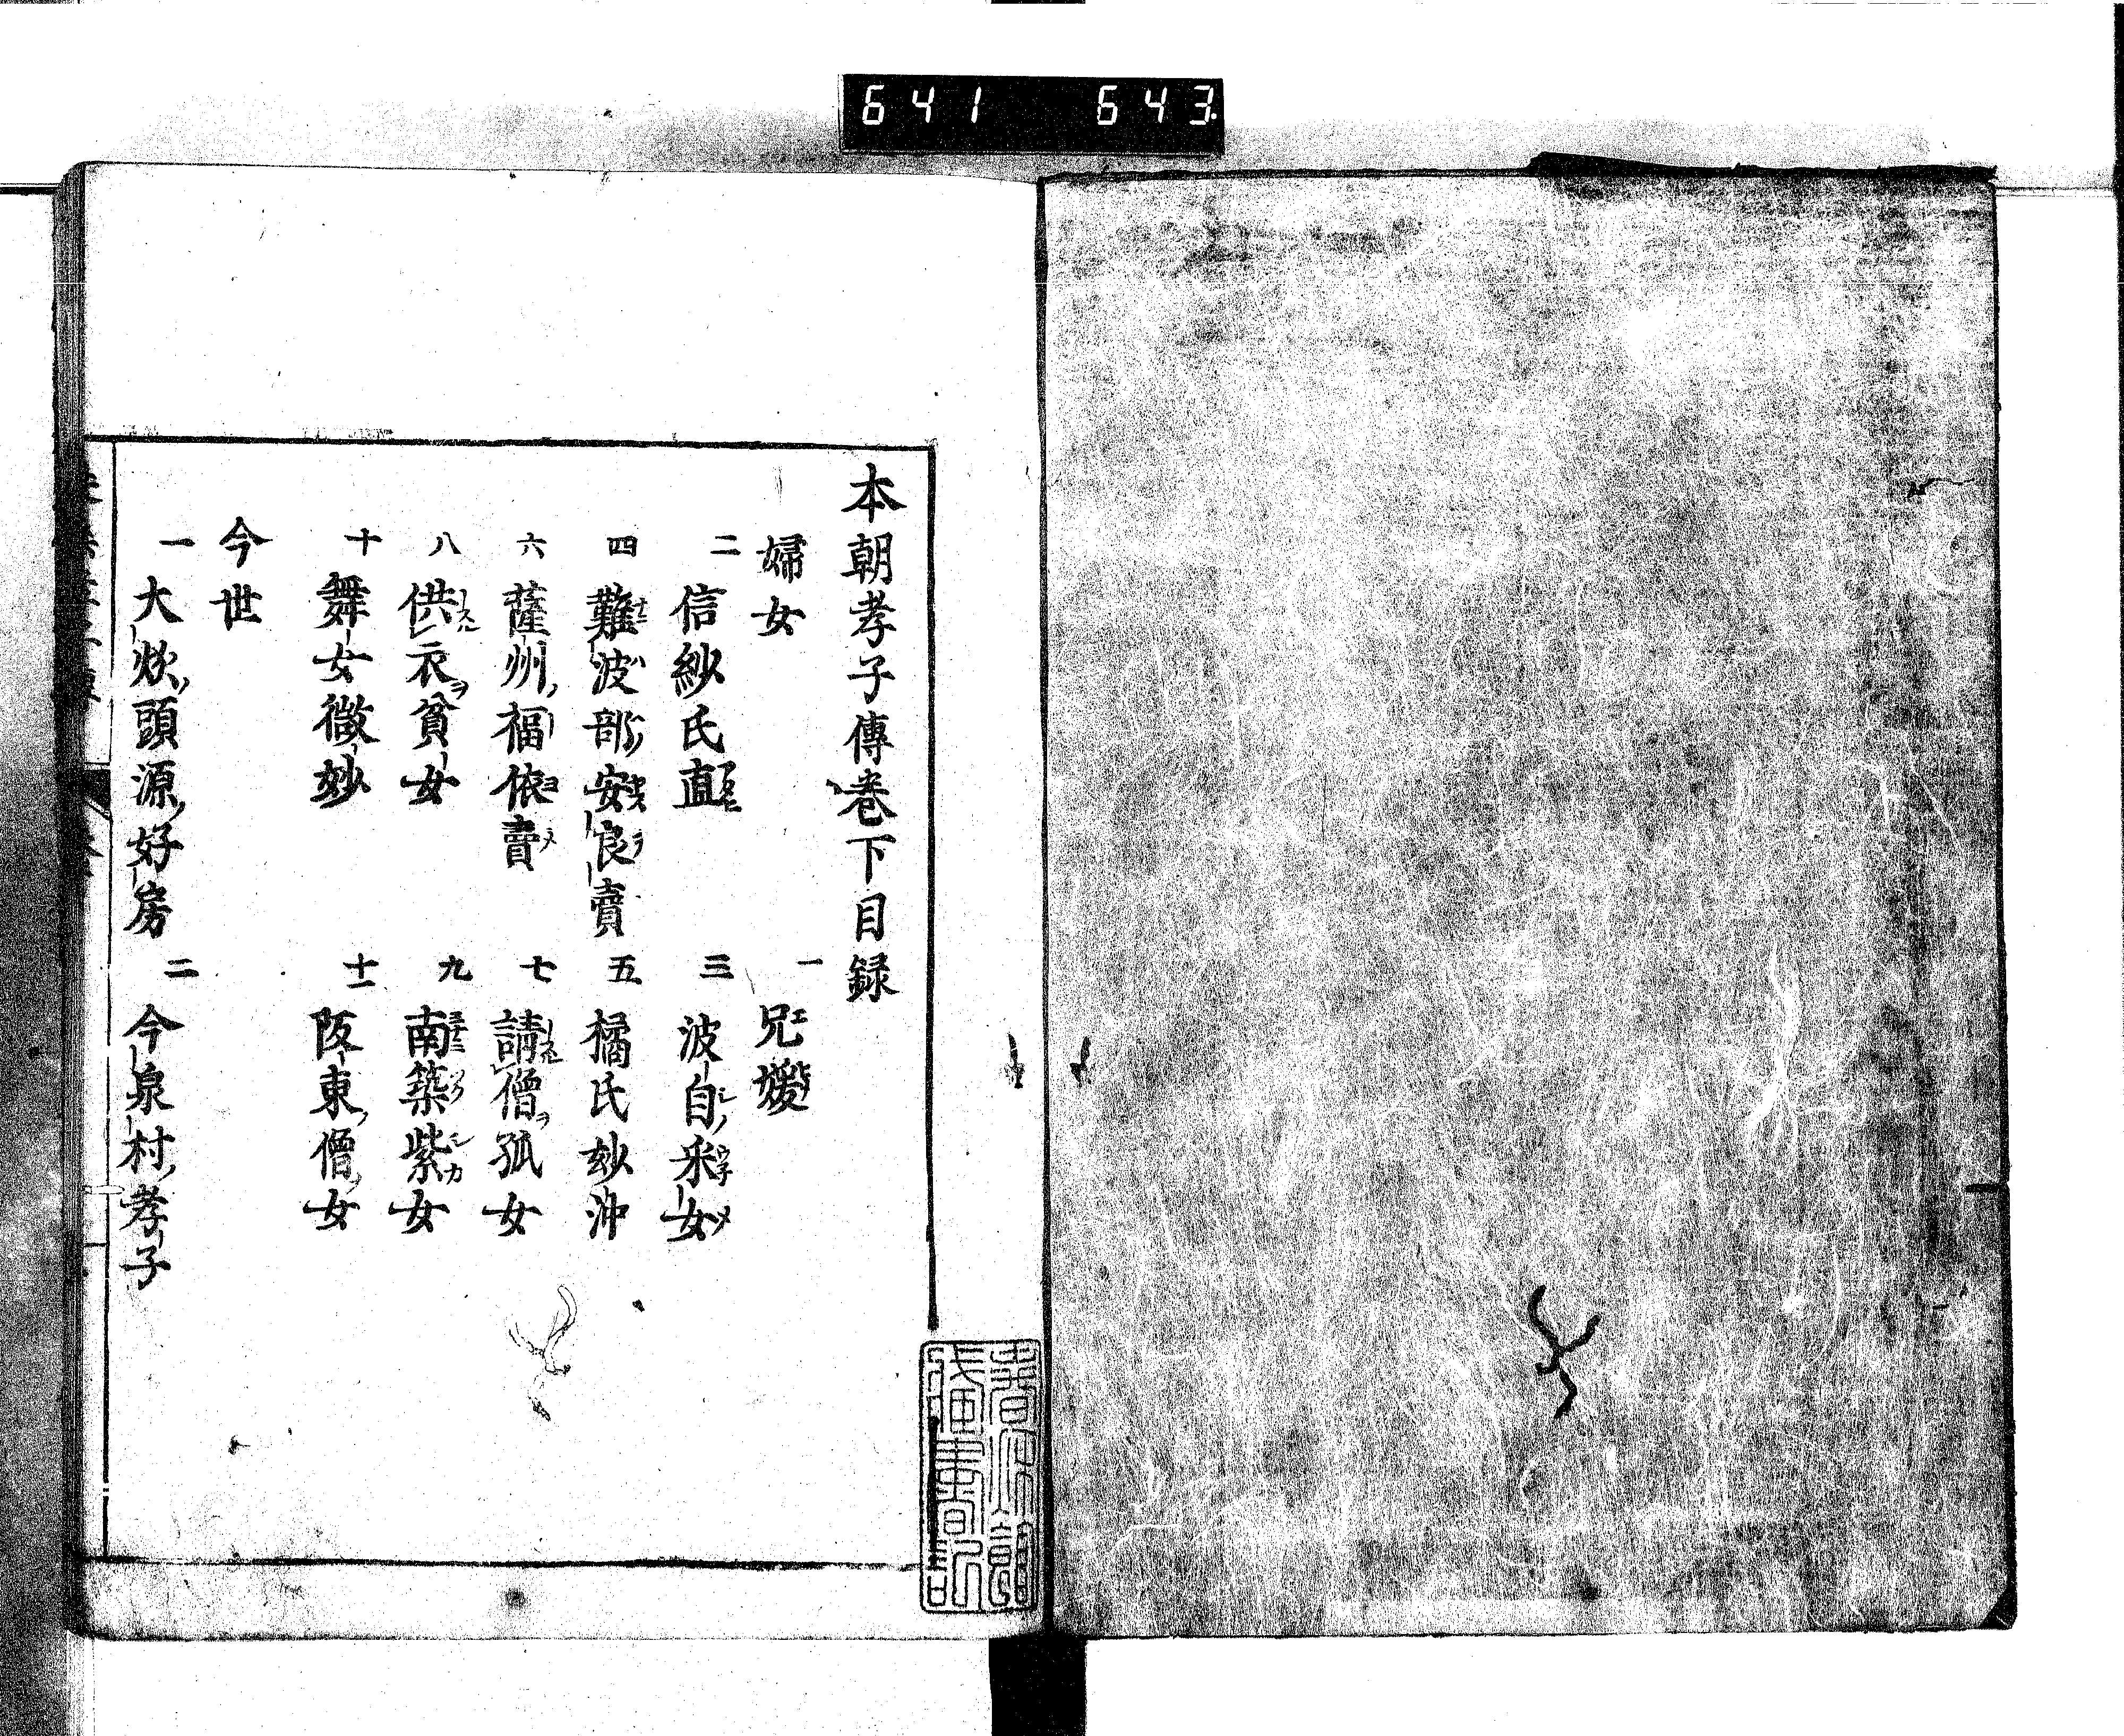 641 643
本朝孝子傳卷下目録
婦女 一 兄媛
二 信紗氏直 三 波自采女
四 難波部安良賣 五 橘氏妙沖
六 薩州福依賣 七 請僧孤女
八 供衣貧女 九 南築紫女
十 舞女微妙 十一 阪東僧女
今世
一 大炊頭源好房 二 今泉村孝子